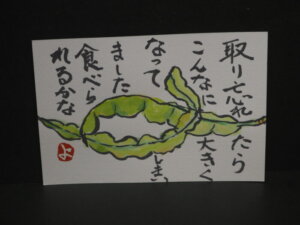 取り忘れたら
こんなに大きく
なってしまい
ました
食べら
れるかな
よ